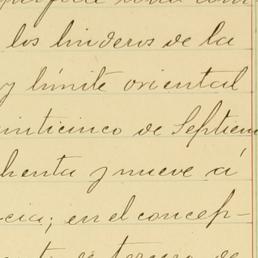 los linderos de la
y límite oriental
einticinco de Septiem
henta y nueve á
cia; en el concep-